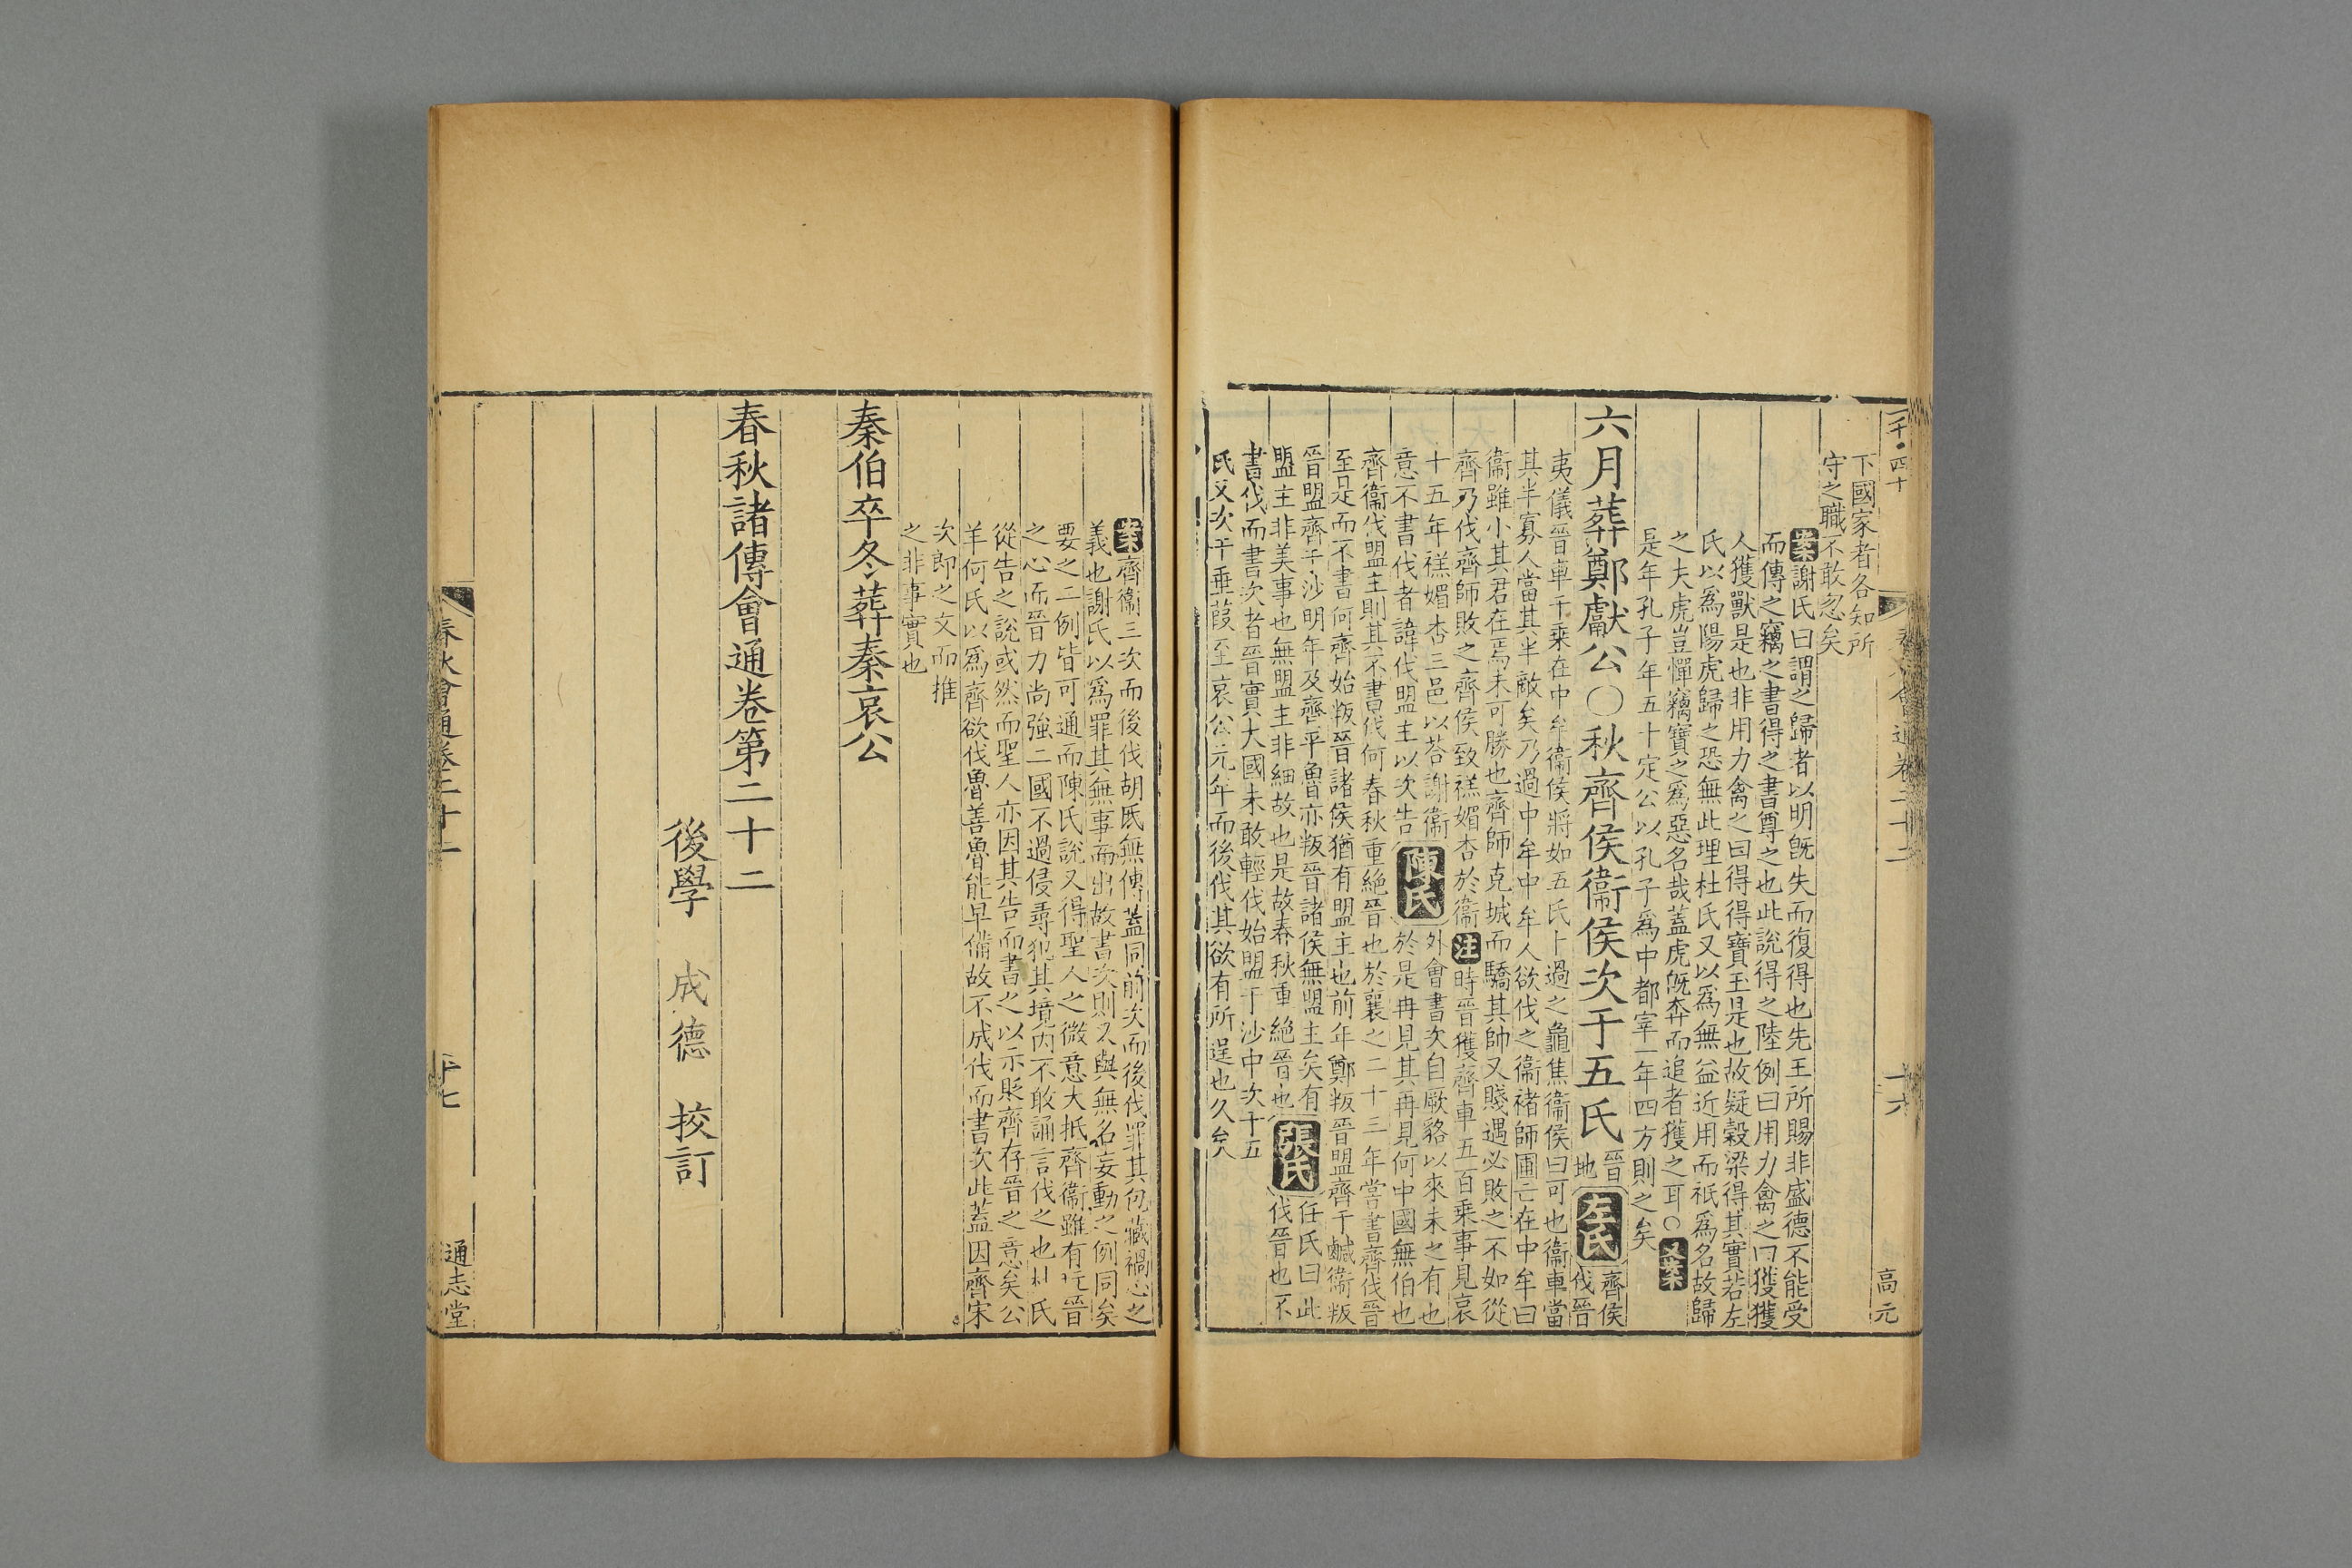 下國家者各知所
守之職不敢忽矣
案謝氏曰謂之歸者以明旣失而復得也先王所賜非盛德不能受
而傳之竊之書得之書尊之也此說得之陸例曰用力禽之曰獲獲
人獲獸是也非用力禽之曰得得寶玉是也故疑穀梁得其實若左
氏以爲陽虎歸之恐無此理杜氏又以爲無益近用而祇爲名故歸
之夫虎豈憚竊寶之爲惡名哉蓋虎旣奔而追者獲之耳○又案
是年孔子年五十定公以孔子爲中都宰一年四方則之矣
六月葬鄭獻公○秋齊侯衞侯次于五氏
晉
地
左氏
齊侯
伐晉
夷儀晉車千乘在中牟衞侯將如五氏卜過之龜焦衞侯曰可也衞車當
其半寡人當其半敵矣乃過中牟中牟人欲伐之衞褚師圃亡在中牟曰
衞雖小其君在焉未可勝也齊師克城而驕其帥又賤遇必敗之不如從
齊乃伐齊師敗之齊侯致禚媚杏於衞注時晉獲齊車五百乘事見哀
十五年禚媚杏三邑以荅謝衞
意不書伐者諱伐盟主以次告
陳氏
外會書次自厥貉以來未之有也
於是冉見其再見何中國無伯也
齊衞伐盟主則其不書伐何春秋重絕晉也於襄之二十三年嘗書齊伐晉
至是而不書何齊始叛晉諸侯猶有盟主也前年鄭叛晉盟齊于鹹衞叛
晉盟齊于沙明年及齊平魯亦叛晉諸侯無盟主矣有
盟主非美事也無盟主非細故也是故春秋重絕晉也
張氏
任氏曰此
伐晉也不
書伐而書次者晉實大國未敢輕伐始盟于沙中次于五
氏又次于垂葭至哀公元年而後伐其欲有所逞也久矣
案齊衞三次而後伐胡氏無傳蓋同前次而後伐罪其包藏禍心之
義也謝氏以爲罪其無事而出故書次則又與無名妄動之例同矣
要之二例皆可通而陳氏說又得聖人之微意大抵齊衞雖有圮晉
之心而晉力尚強二國不過侵尋犯其境內不敢誦言伐之也杜氏
從告之說或然而聖人亦因其告而書之以示貶齊存晉之意矣公
羊何氏以爲齊欲伐魯善魯能早備故不成伐而書次此蓋因齊宋
次郎之文而推
之非事實也
秦伯卒冬葬秦哀公
春秋諸傳會通卷第二十二
後學 成德 挍訂
春秋會通卷二十二
通志堂
高元